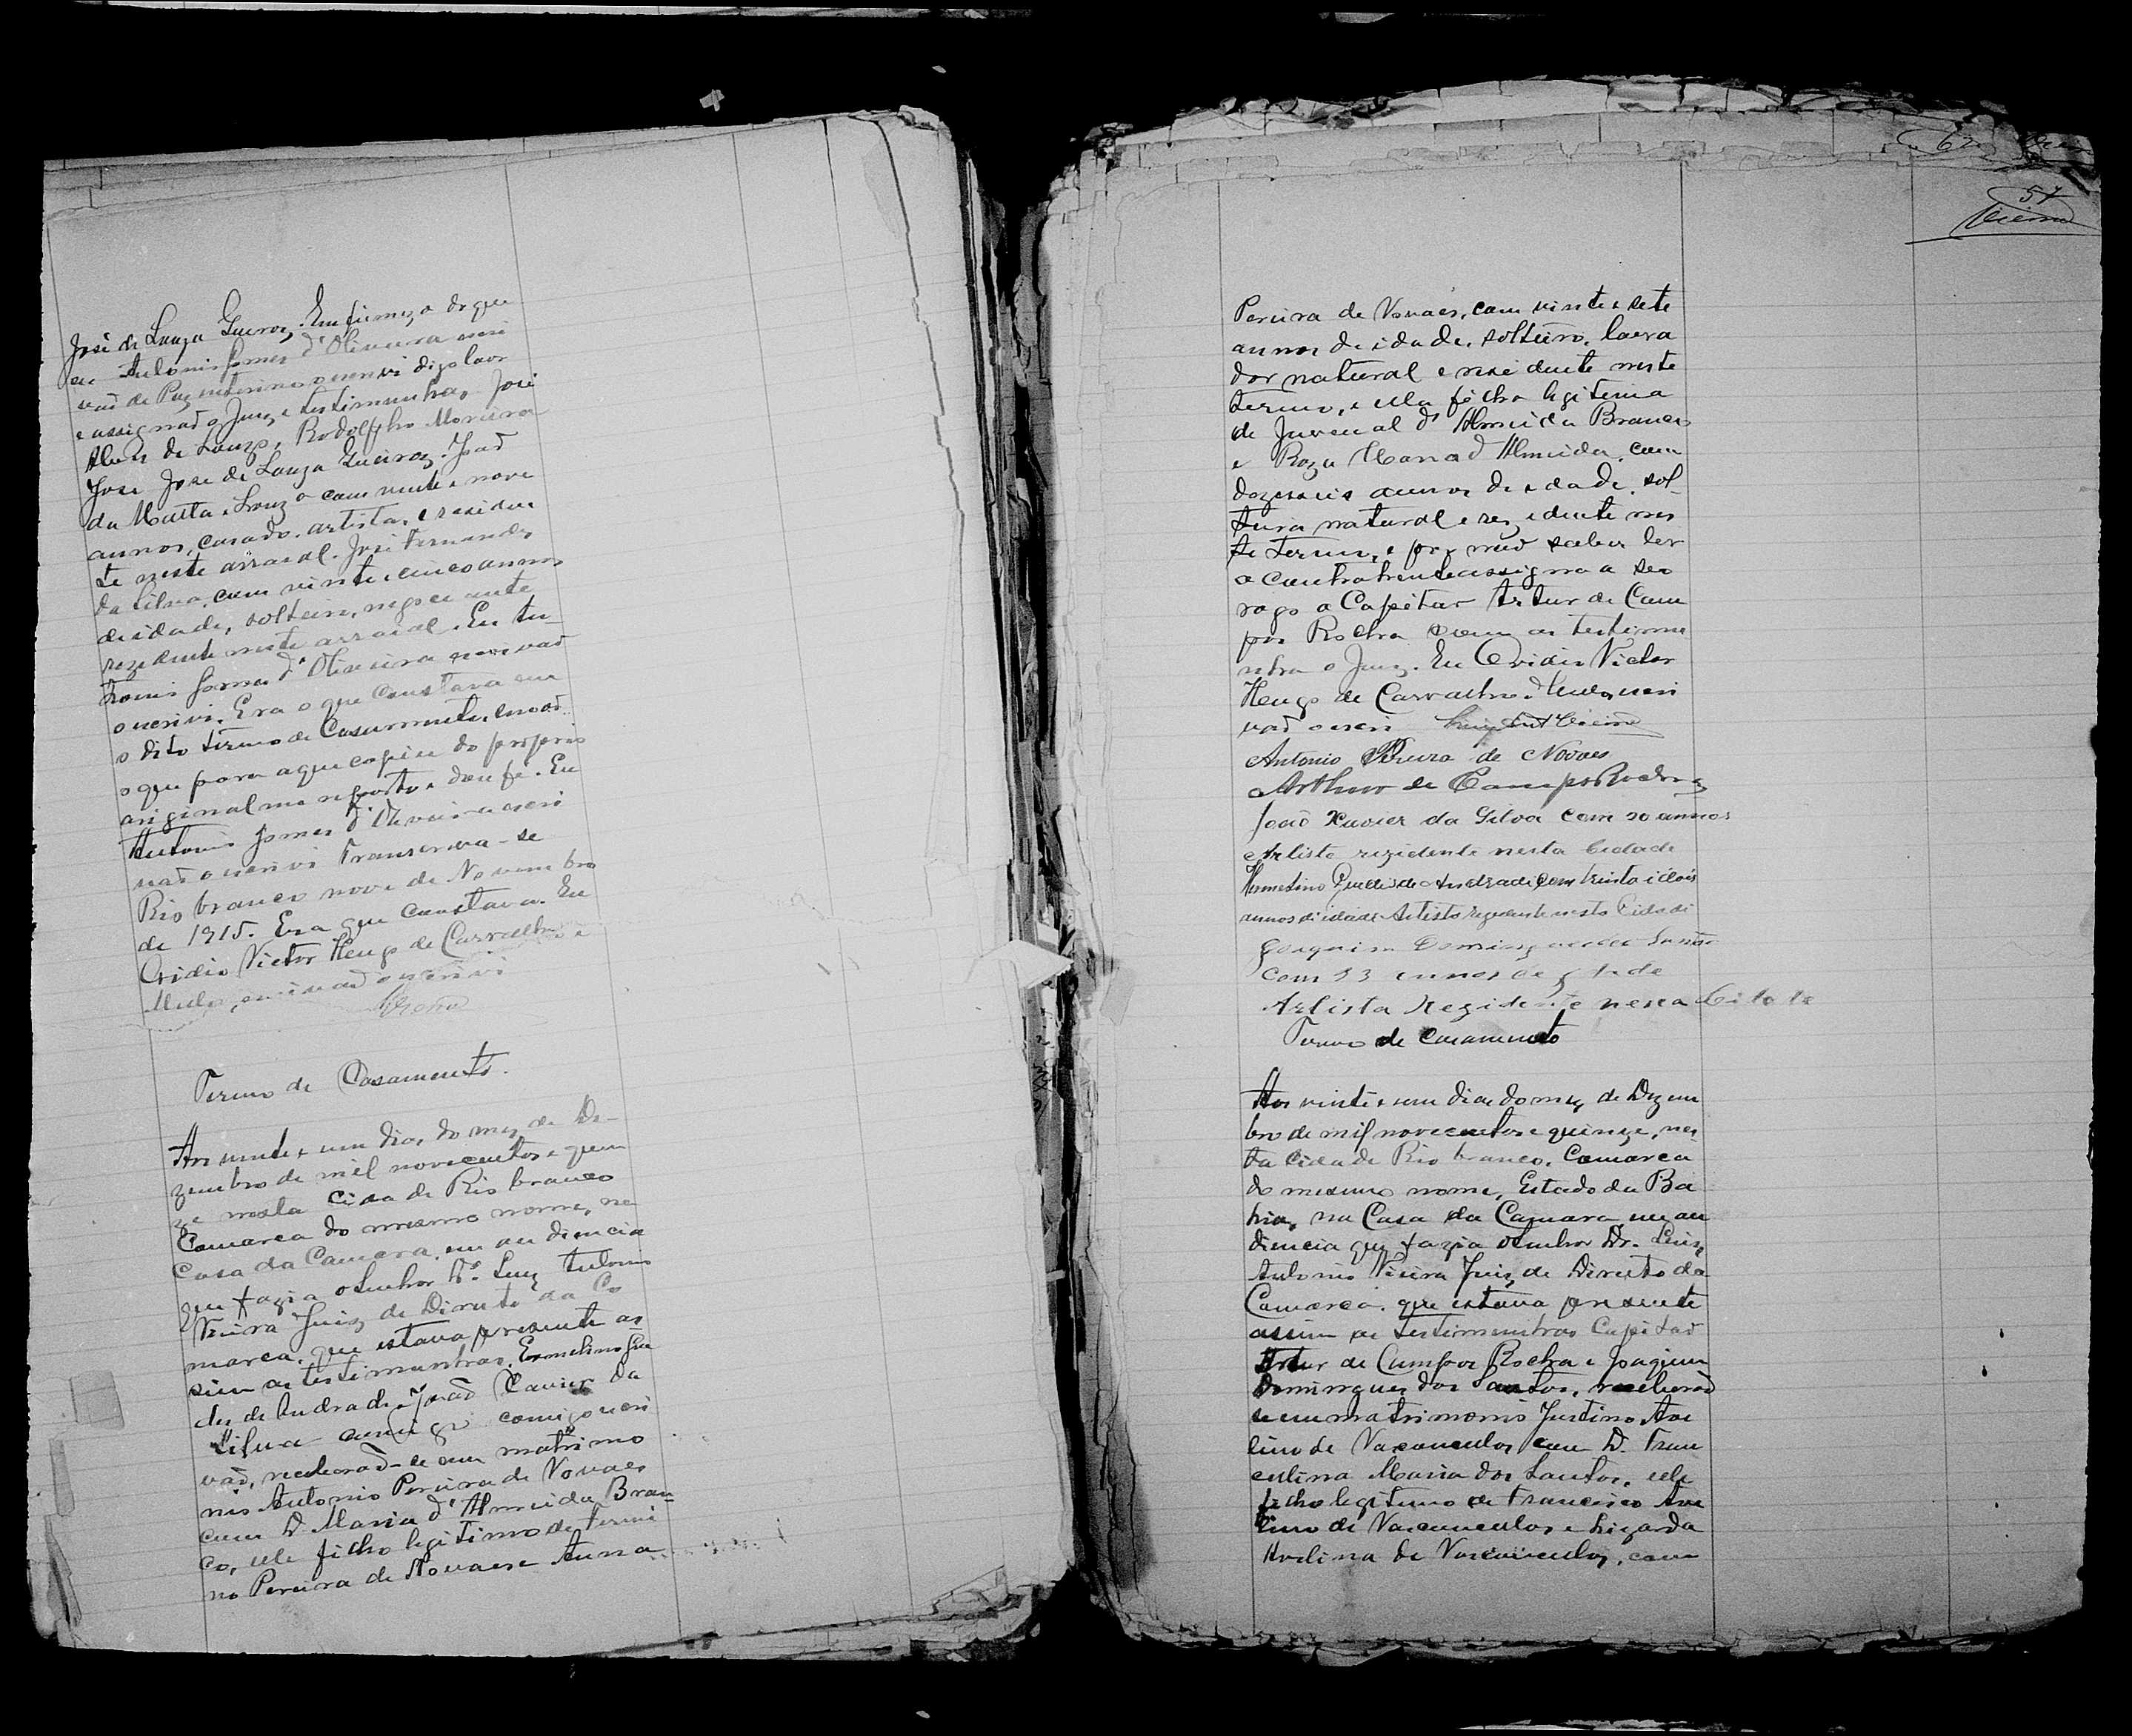 José de Souza Gueroz. Em firmeza do que
eu Antonio Gomes d'Oliveira escri
vaõ de Paz interino o escrevi digo lavr
e assignaõ o Juiz e testimunhas. José
Alves de Souza, Rodolpho Moreira
José José de Souza Gueiroz. Joaõ
da Matta e Souza com vinte e nove
annos, casado, artista, e residen
te neste arraial. José Fernandes
da Silva, com vinte e cinco annos
de idade, solteiro, negociante
rezidente neste arraial. Eu An
tonio Gomes d'Oliveira escrivaõ
o escrivi. Era o que constava em
o dito termo de Casamento, 
o que para aqui copiei do proprio
original me reporto e dou fé. Eu
Antonio Gomes d'Oliveira escri
vaõ o escrivi Transcreva-se
Rio branco nove de Novembro
de 1915. Era que constava. Eu
Ovidio Victor Hugo de Carvalho e
Mello, escrivaõ o escrivi
Termo de Casamento.
Aos vinte e um dias do mez de De-
zembro de mil novecentos e quin
ze nesta cidade Rio branco
Comarca do mesmo nome, na
Casa da Camara, em audiencia
que fazia o Senhor Dr. Luiz Antonio
Vieira Juiz de Direito da Co
marca, que estava presente as
sim as testimunhas, Ermelino Gue
des de Andrade e Joaõ Xavier da
Silva comigo escri
vaõ, receberaõ-se em matrimo
nio Antonio Pereira de Novaes
com D. Maria d'Almeida Bran=
co, elle filho legitimo de Firmi
no Pereira de Novaes e Anna
57
Vieira
Pereira de Novaes, com vinte e sete
annos de idade, solteiro, lavra
dor natural e residente neste
termo, e ella filha legitima
de Juvenal d'Almeida Branco
e Roza Maria d'Almeida, com
dezesseis annos de idade, sol-
teira natural e rezidente nes
te termo, e por naõ saber ler
a contrahente assigna a seo
rogo o Capitaõ Artur de Cam
pos Rocha com as testimu
nhas o Juiz. Eu Ovidio Victor
Hugo de Carvalho e Mello, escri
vaõ o escri Luiz Ant Vieira
Antonio Pereira de Novaes
Arthur de Campos Rocha
Joaõ Xavier da Silva com 20 annos
Artista rezidente nesta Cidade
Hermelino Guedes de Andrade com trinta i dois
annos di idade Artista rezidente nesta Cidadi
Joaquim Domingues dos Santos
com 33 annos de idade
Artista Rezidente nesta Cidade
Termo de Casamento
Aos vinte e um dias do mez de Dezem
bro de mil novecentos e quinze, nes
ta Cidade Rio branco, Comarca
do mesmo nome, Estado da Ba
hia, na Casa da Camara em au
diencia que fazia o Senhor Dr. Luiz
Antonio Vieira Juiz de Direito da
Comarca, que estava presente
assim as testimunhas Capitaõ
Artur de Campos Rocha e Joaquim
Domingues dos Santos, receberaõ
se em matrimonio Justino Ave
lino de Vasconcelos com D. Fran
celina Maria dos Santos, elle
filho legitimo de Francisco Ave
lino de Vasconcelos e Ligarda
Avelina de Vasconcelos, com